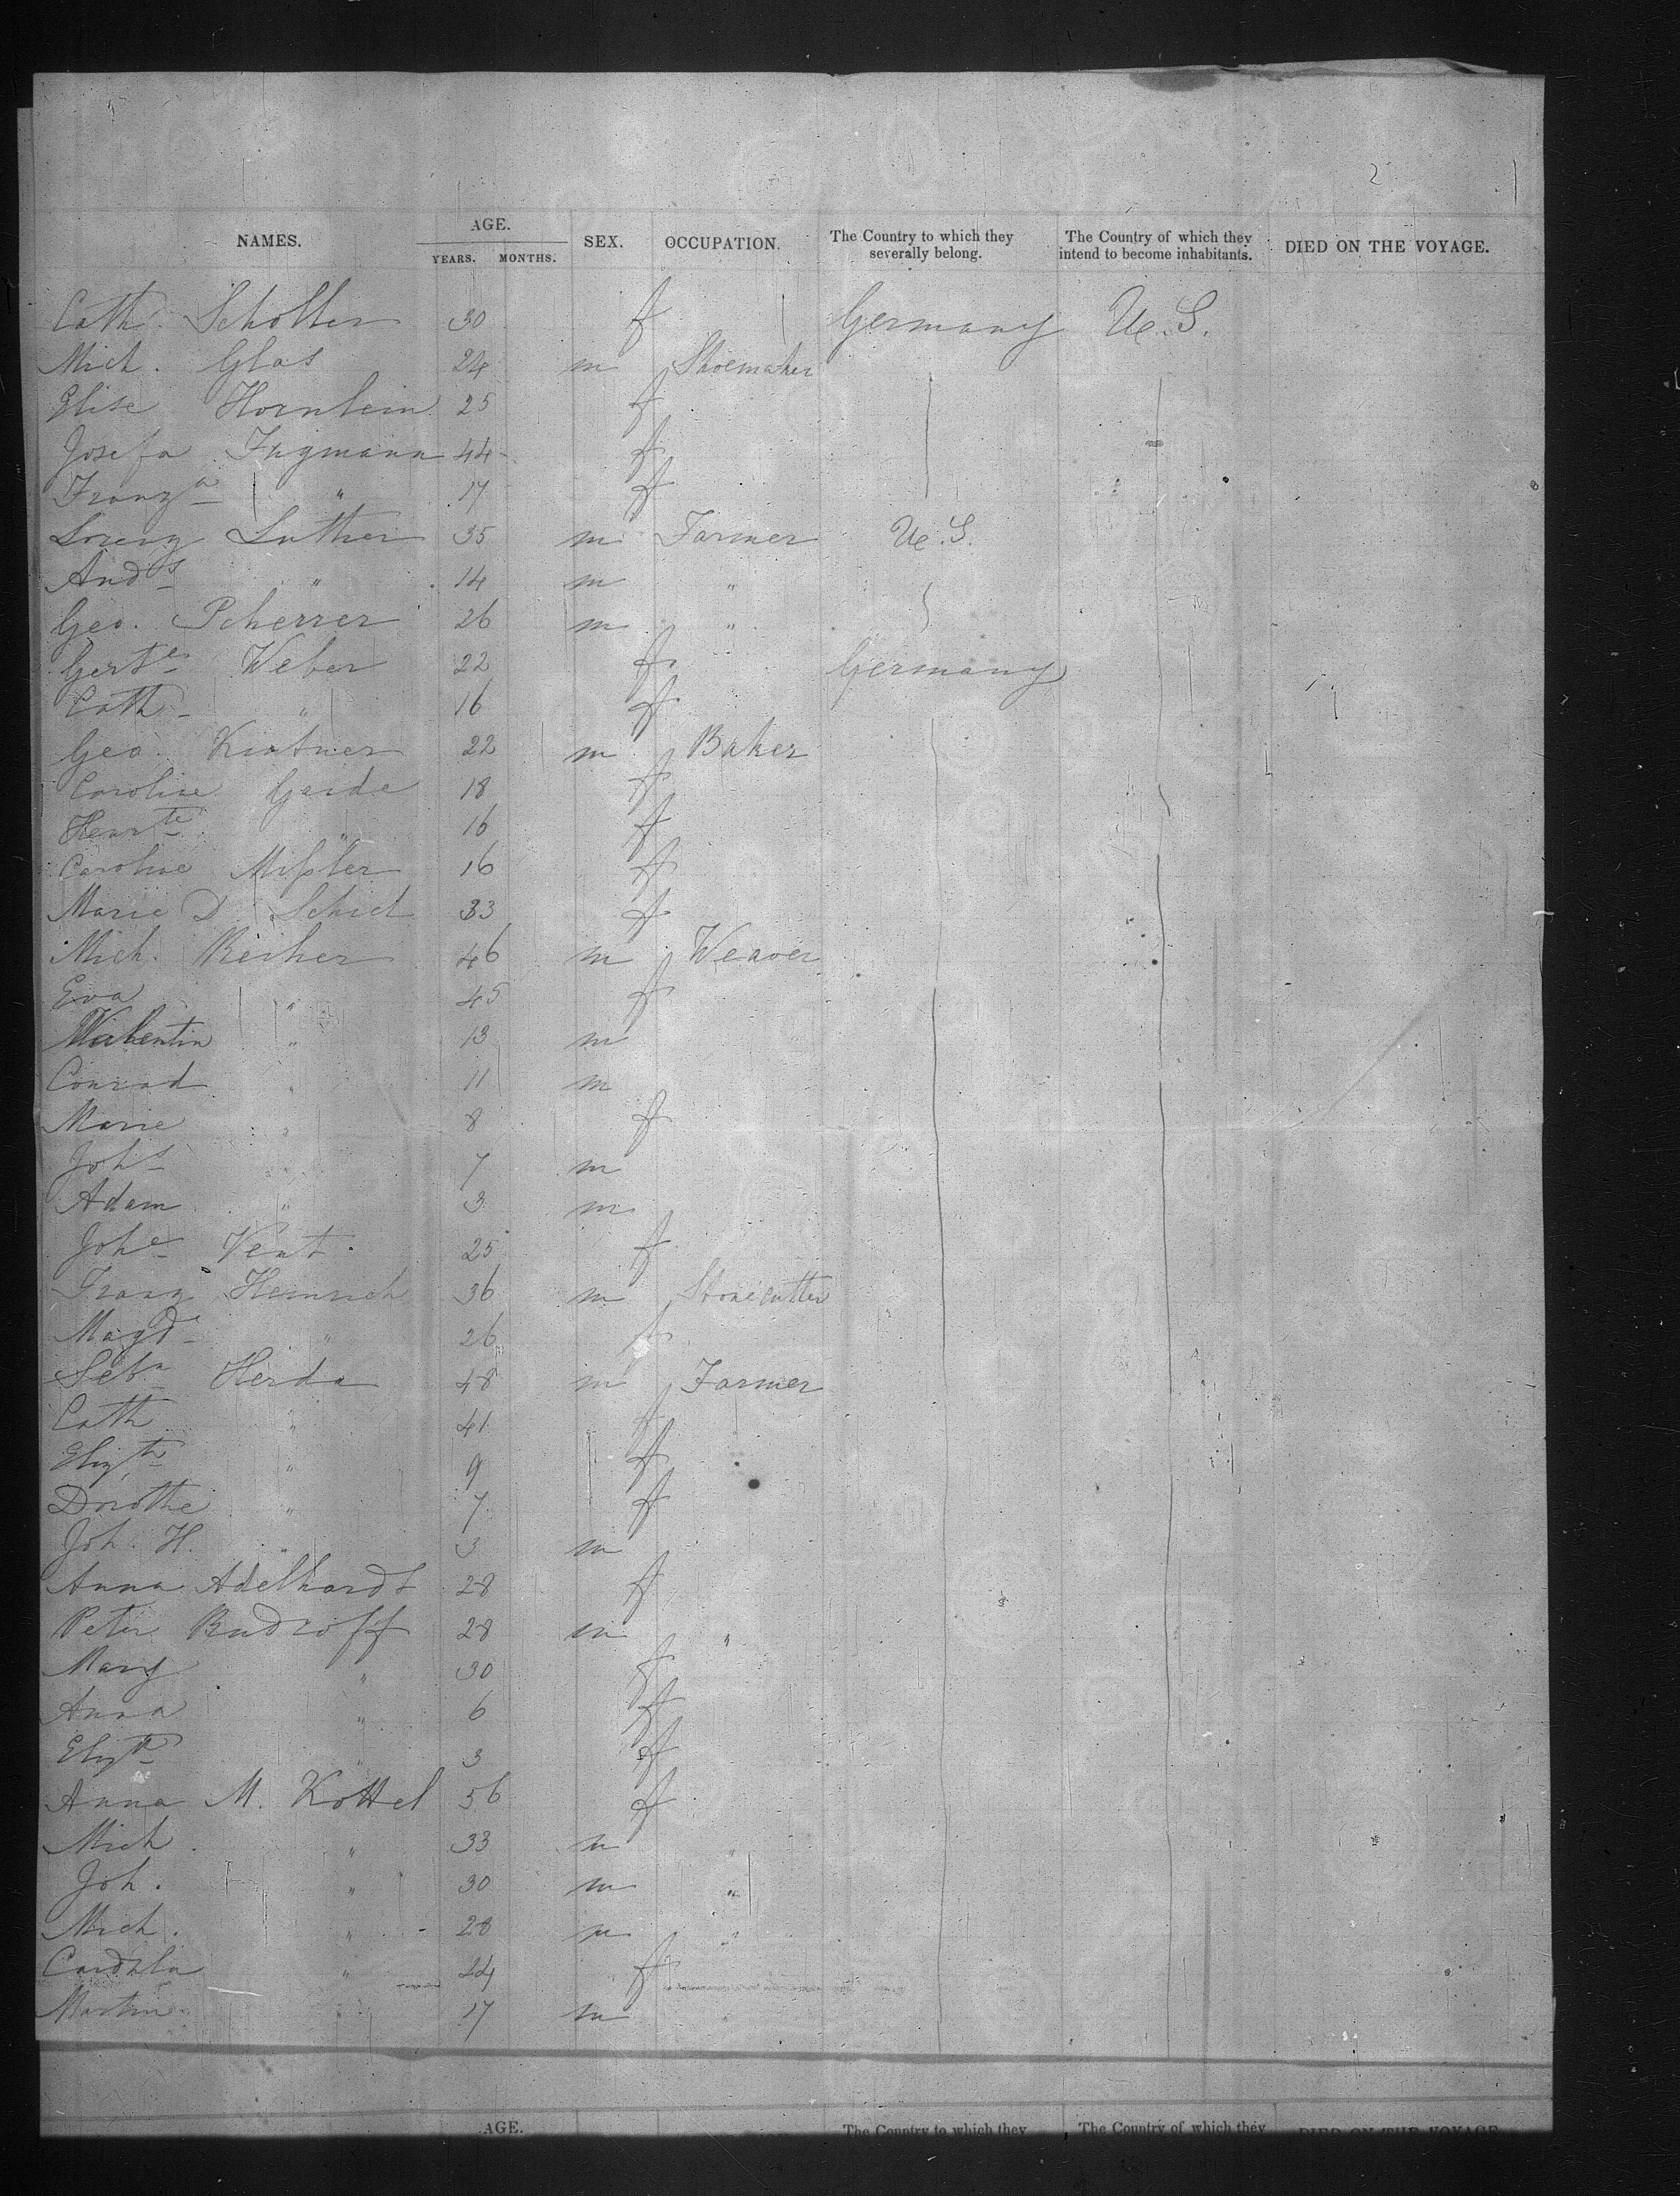 2
NAMES. AGE. YEARS. MONTHS. SEX. OCCUPATION. The Country to which they severally belong. The Country of which they intend to become inhabitants. DIED ON THE VOYAGE.
Cath. Scholler 30 f Germany U.S.
Mich. Glas 24 m Shoemaker
Elise Hornlein 25 f
Josefa Fugmann 44 f
Franz a " 17 f
Lorenz Luther 35 m Farmer U.S.
And s " 14 m "
Geo. Scherrer 26 m "
Gert e Weber 22 f Germany
Cath " 16 f
Geo. 22 m Baker
Caroline Garde 18 f
Henr te " 16 f
Caroline Mißler 16 f
Marie D. Schiel 33 f
Mich. Becher 46 m Weaver
Eva " 45 f
Valentin " 13 m
Conrad " 11 m
Marie " 8 f
Joh s " 7 m
Adam " 3 m
Joh e Vent 25 f
Franz Heinrich 36 m Stonecutter
Magd " 26 f
Seb n Herda 48 m Farmer
Cath " 41 f
Eliz th " 9 f
Dorothe " 7 f
Joh. H. " 3 m
Anna Adelhardt 28 f
Peter Budroff 28 m "
Mary " 30 f
Anna " 6 f
Eliz th " 3 f
Anna M. Kottel 56 f
Mich. " 33 m "
Joh. " 30 m "
Mich. " 28 m "
" 24 f
Martin " 17 m "
AGE. The Country to which they The Country of which they DIED ON THE VOYAGE